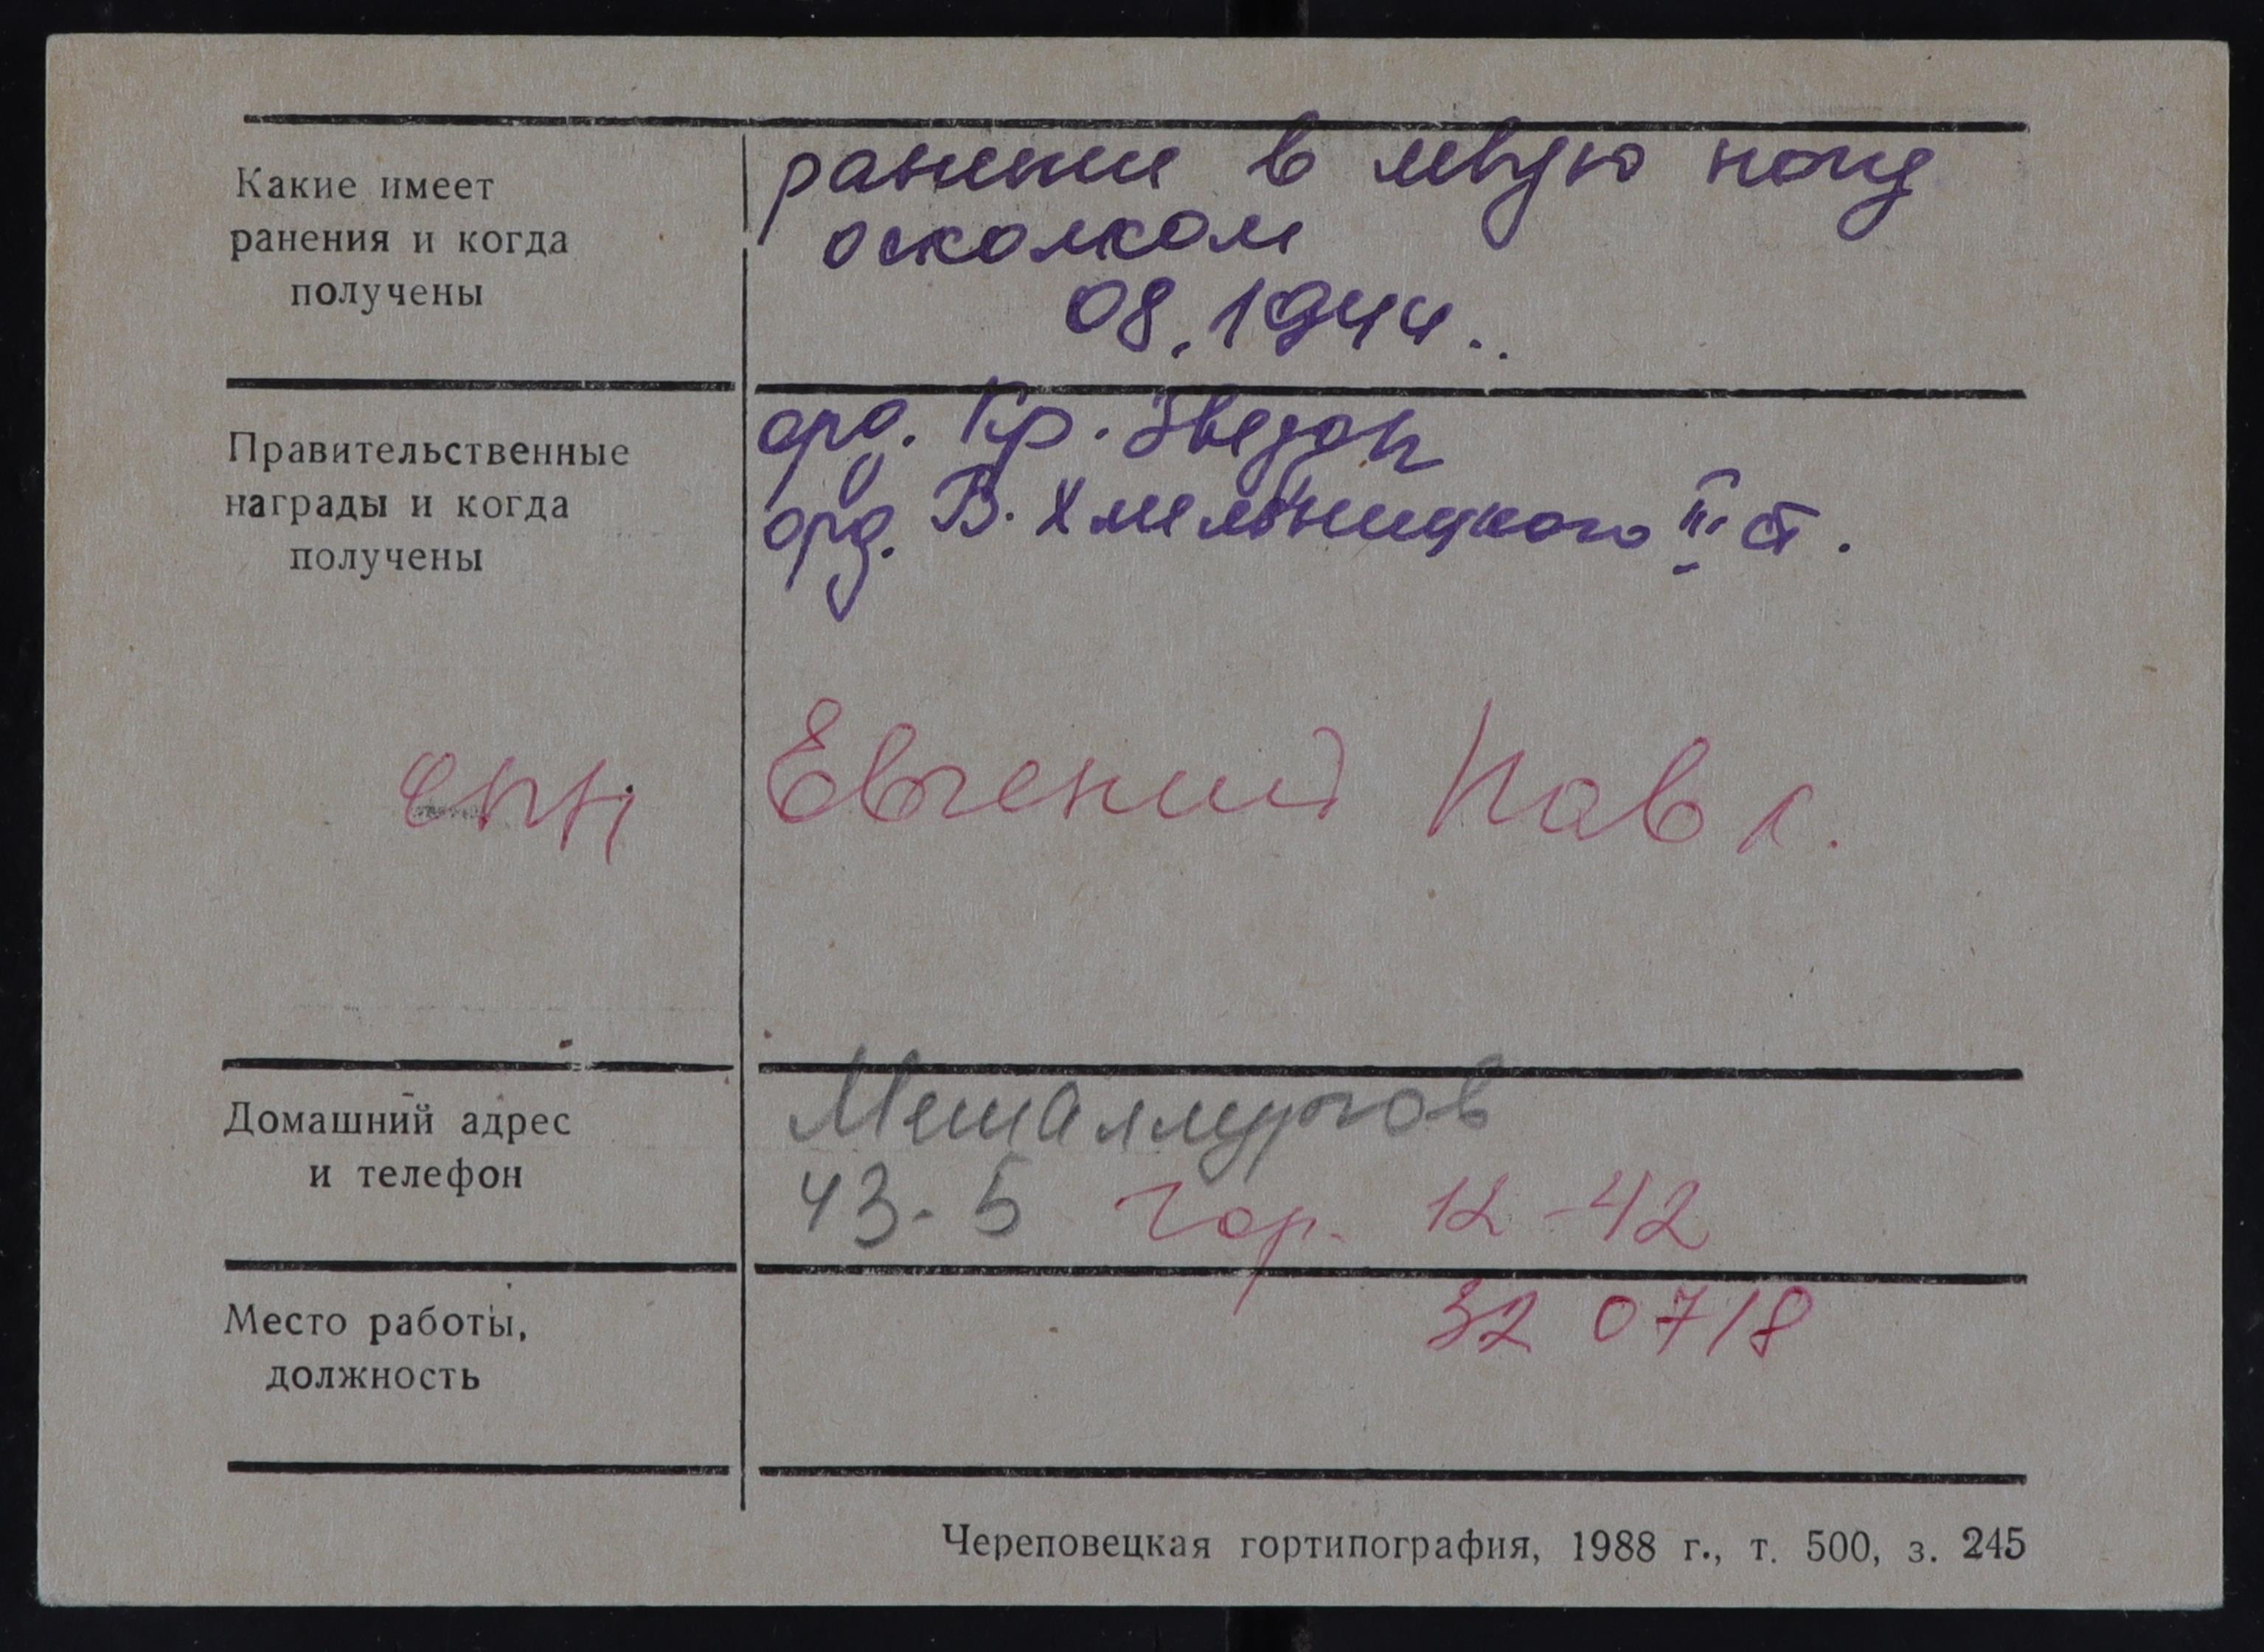 Какие имеет
ранения и когда
получены
ранение в левую ногу
осколком
08.1944..
Правительственные
награды и когда
получены
орд. Кр. Звезды
орд. Б. Хмельницкого III ст.
Евгений Павл.
Домашний адрес
и телефон
Металлургов
43-5 Гор. 12-42
Место работы,
должность
32 07 18
Череповецкая гортипография, 1988 г., т. 500, з. 245